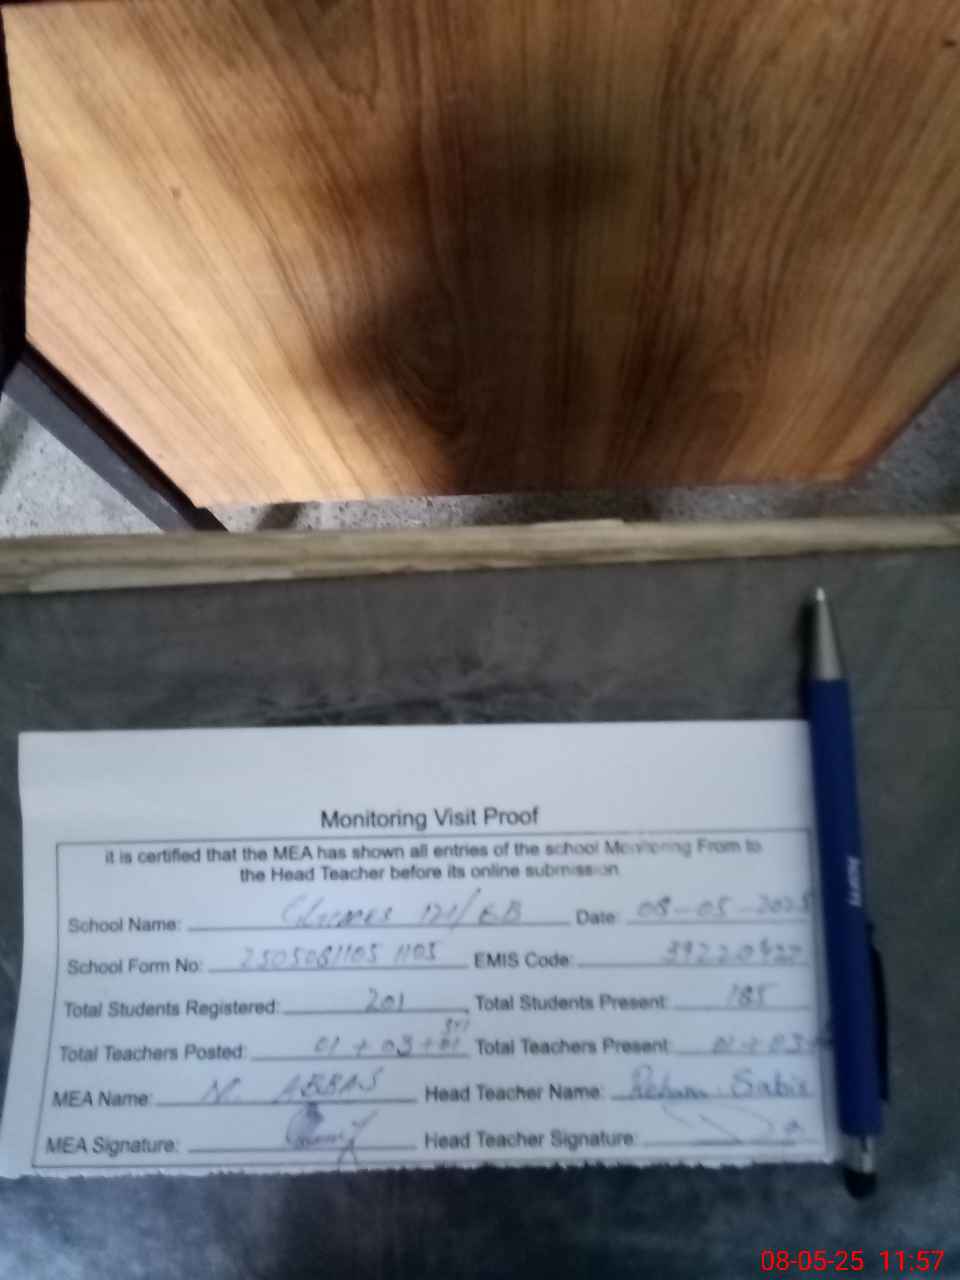 Monitoring Visit Proof
it is certified that the MEA has shown all entries of the school Monitoring From to
the Head Teacher before its online submission
School Name: 121/EB Date: 08-05-2025
School Form No: 2505081105 1105 EMIS Code:
Total Students Registered: 201 Total Students Present: 185
Total Teachers Posted: 01 + 03 + 01 Total Teachers Present: 01 + 03 +
MEA Name: M. ABBAS Head Teacher Name: Reham Sabir
MEA Signature: Head Teacher Signature:
08-05-25 11:57